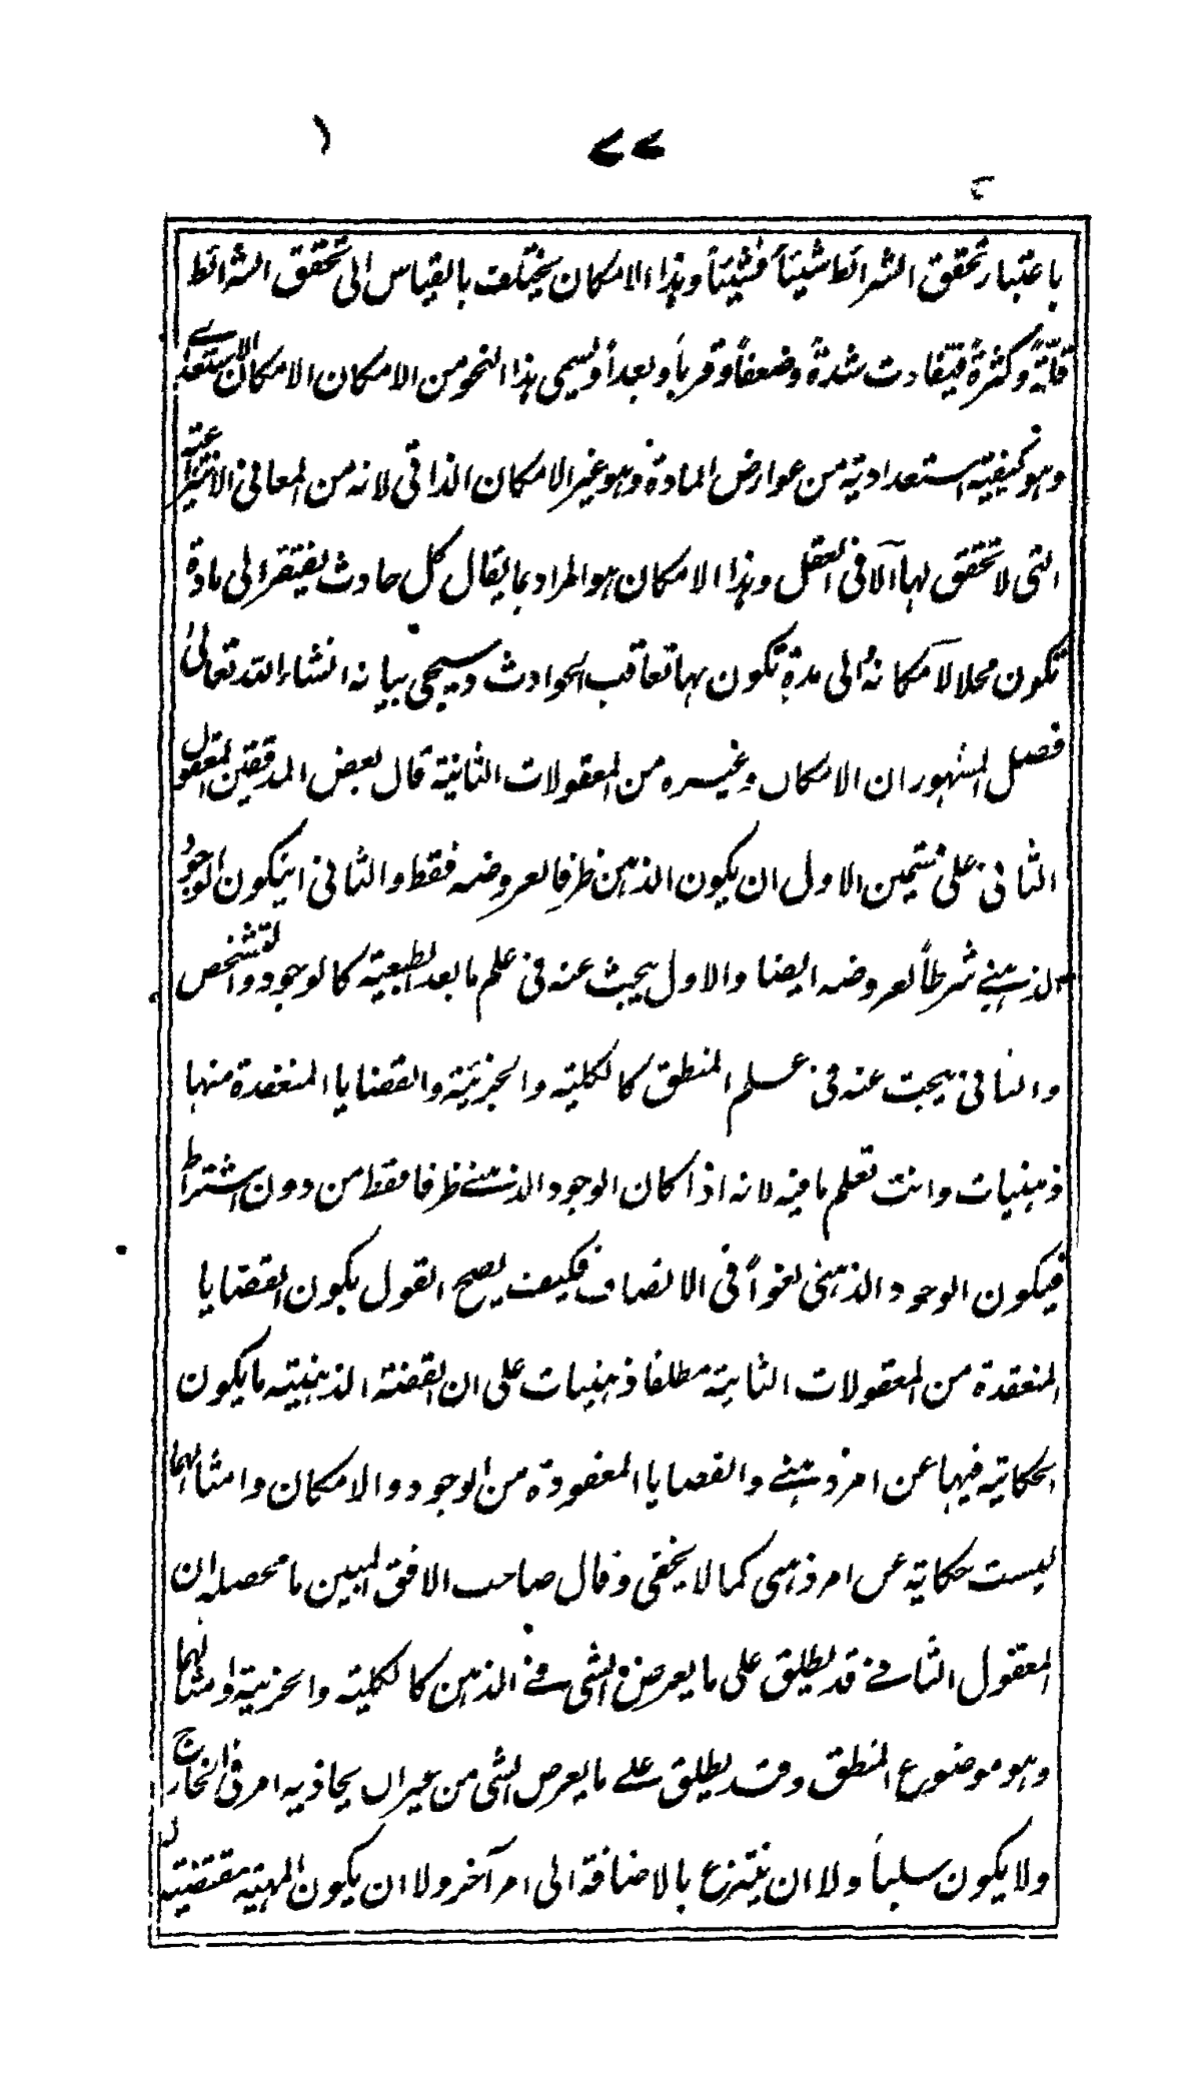 ٧٧
باعتبار تحقق الشرائط شيئاً فشيئاً وهذا الامكان يختلف بالقياس الى تحقق الشرائط
قلّةً وكثرةً فيتفاوت شدةً وضعفاً وقرباً وبعداً ويسمى هذا النحو من الامكان الامكان الاستعدادے
وهو كيفية استعدادية من عوارض المادة وهو غير الامكان الذاتى لانه من المعانى الانتزاعية
التى لا تحقق لها الّا فى العقل وهذا الامكان هو المراد بما يقال كل حادث يفتقر الى مادة
تكون محلا لامكانه والى مدة تكون بها تعاقب الحوادث وسيجى بيانه انشاء الله تعالىٰ
فصل المشهور ان الامكان وغيره من المعقولات الثانية قال بعض المدققين المعقول
الثانى على قسمين الاول ان يكون الذهن ظرفا لعروضه فقط والثانى ان يكون الوجود
الذهنے شرطاً لعروضه ايضا والاول يبحث عنه فى علم ما بعد الطبعية كالوجود والتشخص
والثانى يبحث عنه فى علم المنطق كالكلية والجزئية والقضايا المنعقدة منها
ذهنيات وانت تعلم ما فيه لانه اذا كان الوجود الذهنے ظرفا فقط من دون اشتراط
فيكون الوجود الذهنى لغواً فى الاتصاف فكيف يصح القول بكون القضايا
المنعقدة من المعقولات الثانية مطلقا ذهنيات على ان القضية الذهنية ما يكون
الحكاية فيها عن امر ذهنے والقضايا المعقودة من الوجود والامكان وامثالهما
ليست حكاية عن امر ذهنى كما لا يخفى وقال صاحب الافق المبين ما محصله ان
المعقول الثانے قد يطلق على ما يعرض الشى فے الذهن كالكلية والجزئية وامثالهما
وهو موضوع المنطق وقد يطلق علے ما يعرض الشى من غير ان يحاذيه امر فى الخارج
ولا يكون سلباً ولا ان ينتزع بالاضافة الى امر آخر ولا ان يكون المهية مقتضية له